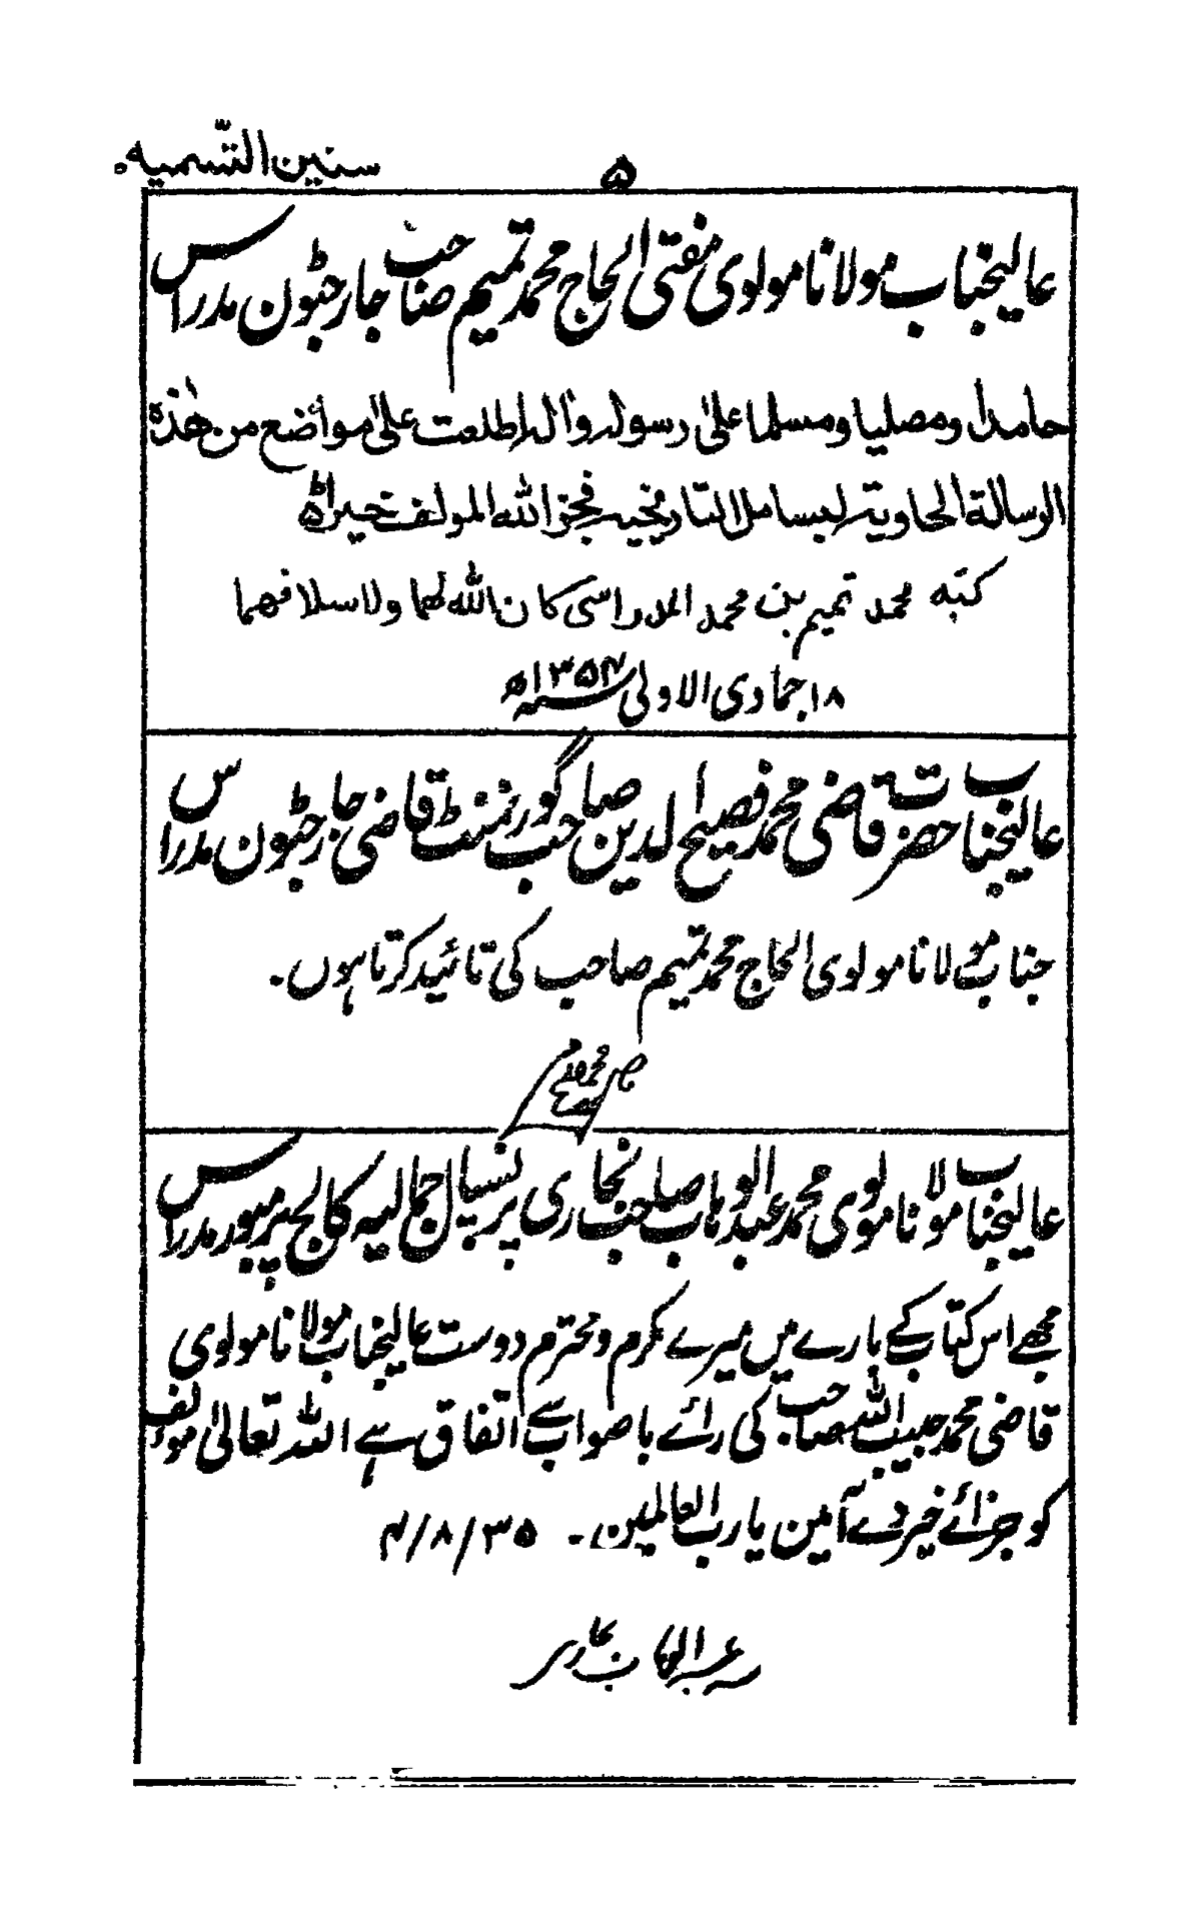 ۵
سنین التسمیه
عالیجناب مولانا مولوی مفتی الحاج محمد تمیم صاحب جارجٹون مدراس
حامداً ومصلیا ومسلما علیٰ رسولہ واٰلہ اطلعت علیٰ مواضع من هٰذہ
الرسالة الحاویة لبسامل التاریخیہ فجز الله المولف خیراً
کتبه محمد تمیم بن محمد المدراسی کان الله لهما ولاسلافهما
۱۸ جمادی الاولیٰ سنہ ۱۳۵۴ھ
عالیجناب حضرت قاضی محمد فصیح الدین صاحب گورنمنٹ قاضی جارجٹون مدراس
جناب مولانا مولوی الحاج محمد تمیم صاحب کی تائید کرتا ہوں۔
محمد فصیح
عالیجناب مولانا مولوی محمد عبدالوہاب صاحب بخاری پرنسپال جمالیہ کالج پرمبور مدراس
مجھے اس کتاب کے بارے میں میرے مکرم و محترم دوست عالیجناب مولانا مولوی
قاضی محمد حبیب اللہ صاحب کی رائے باصواب سے اتفاق ہے اللہ تعالیٰ مؤلف
کو جزائے خیر دے آمین یا رب العالمین۔ ۴/۸/۳۵
عبدالوہاب بخاری